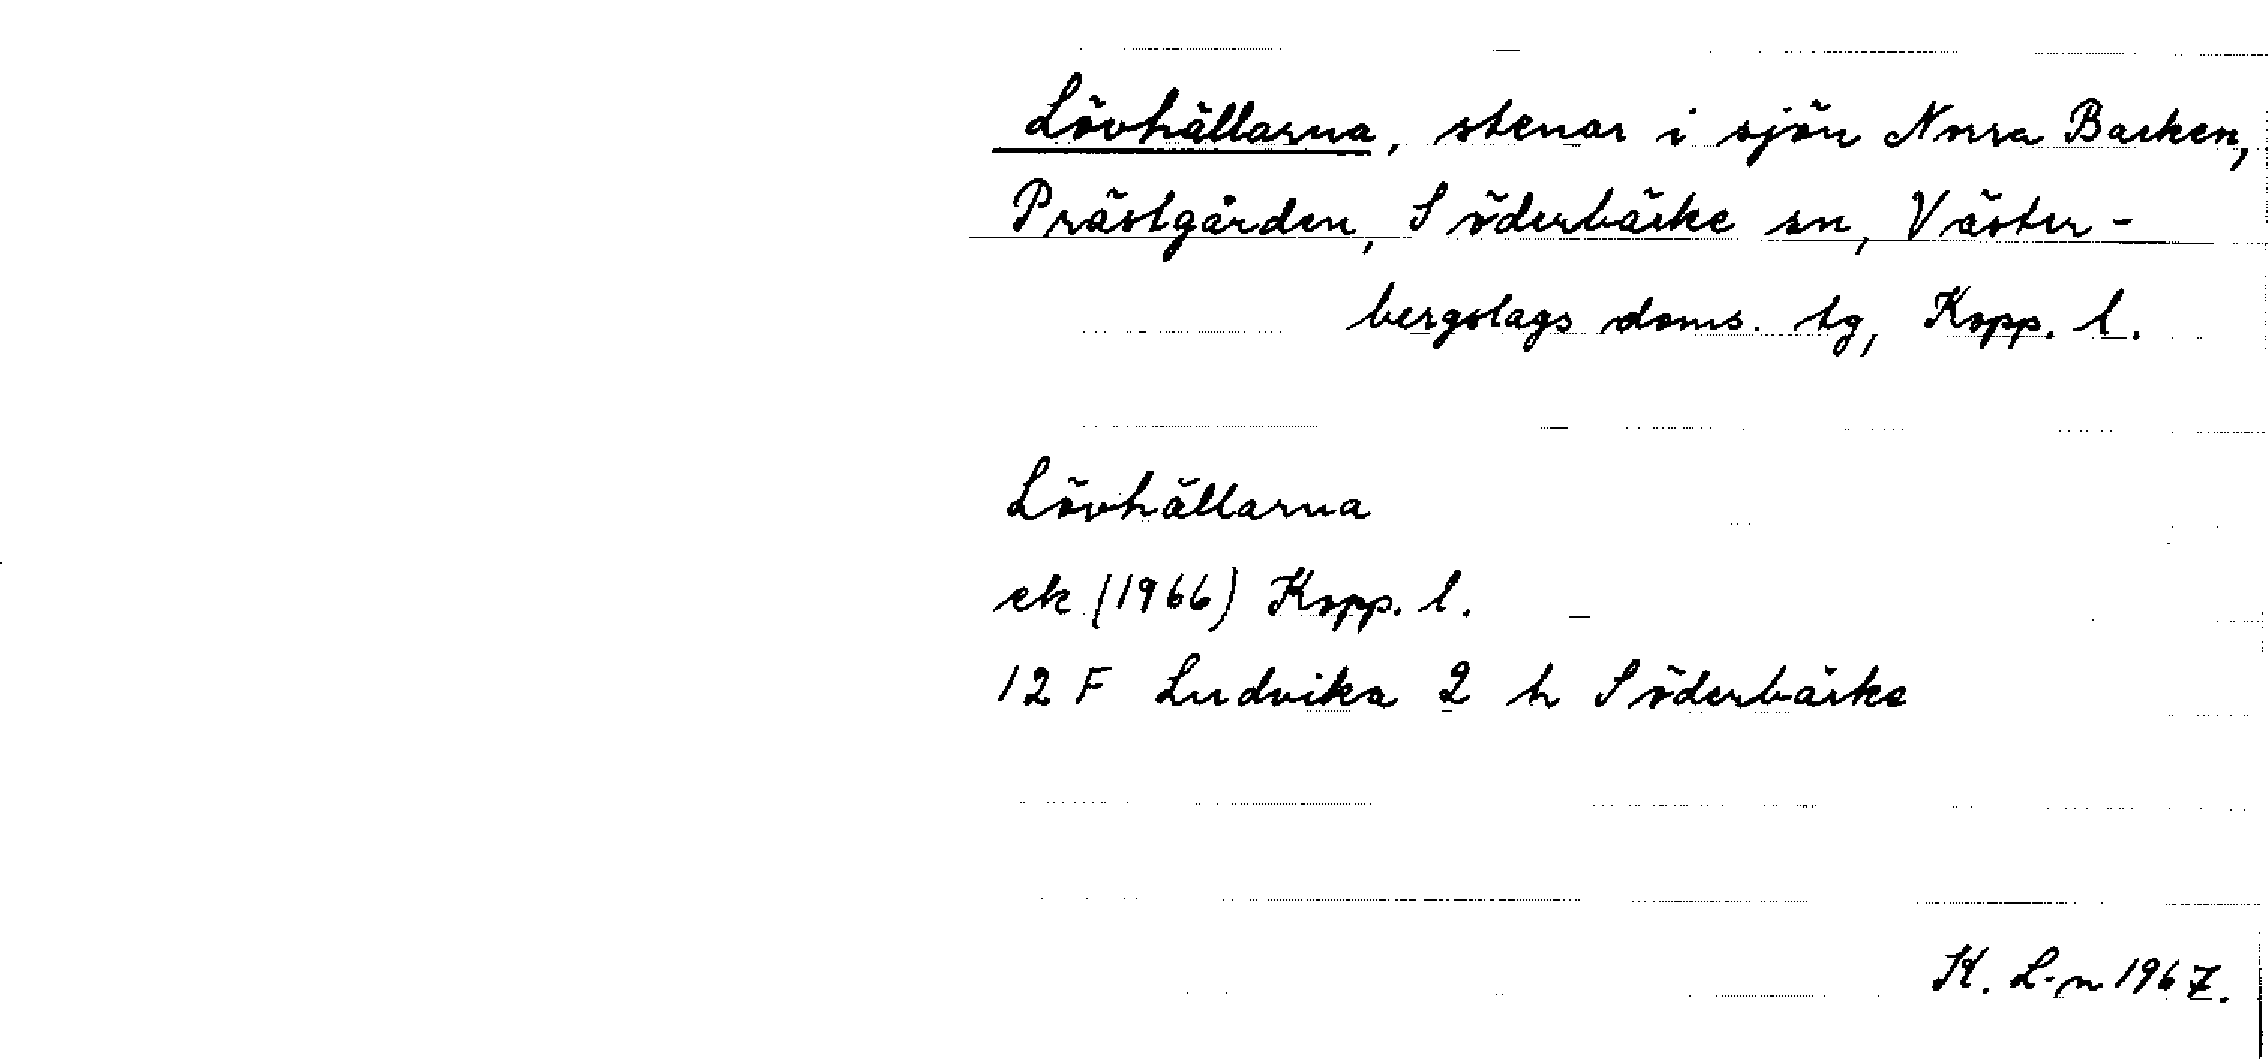 Lövhällarna, stenar i sjön Norra Barken,
Prästgården, Söderbärke sn, Väster-
bergslags doms. tg, Kopp. l.
Lövhällarna
ek (1966) Kopp. l.
12 F Ludvika 2 h Söderbärke
K. L-n 1967.